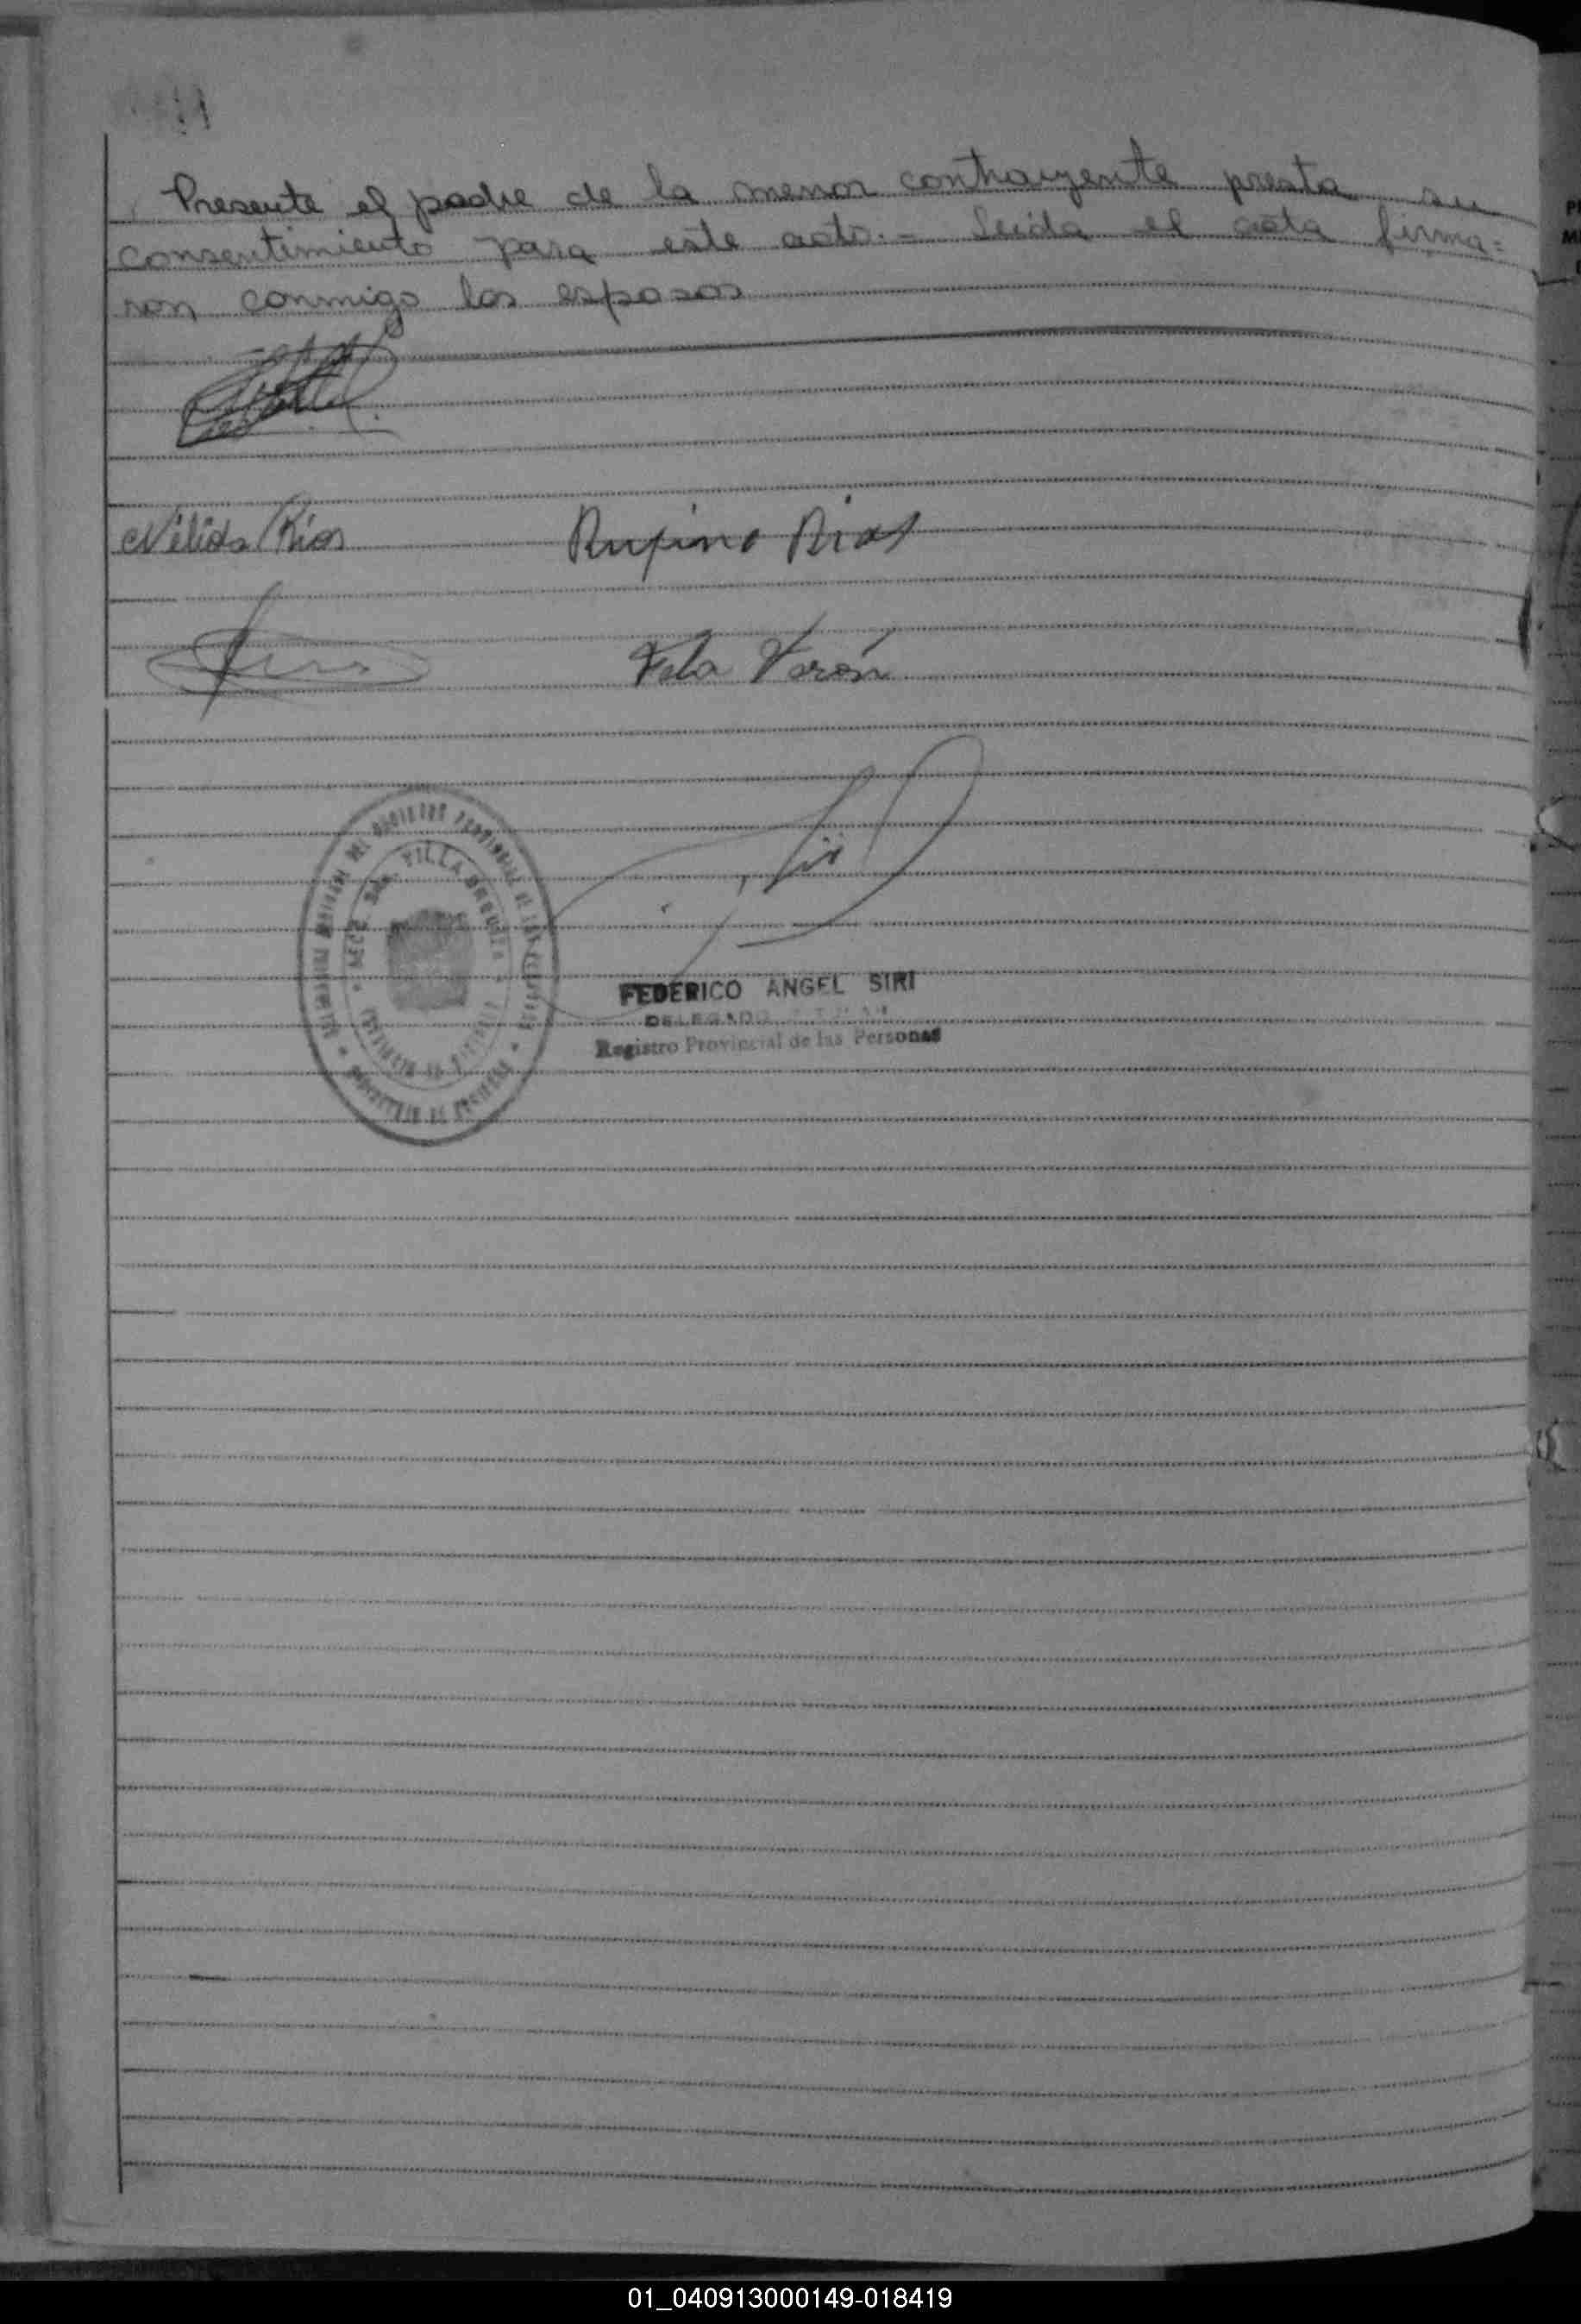 Presente el padre de la menor contrayente presta su
consentimiento para este acto.- Leida el acta firma=
ron conmigo los esposos
Nélida Rios Rufino Rios
Fela Varón
VILLA
FEDERICO ANGEL SIRI
DELEGADO
Registro Provincial de las Personas
01_040913000149-018419